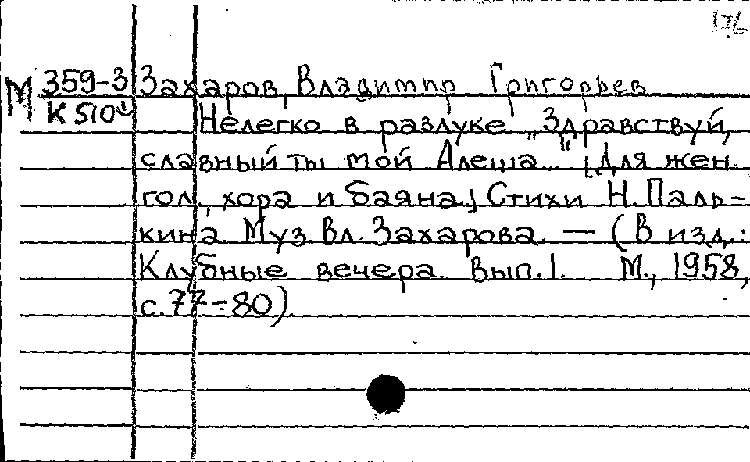 176
М 359-3 Захаров, Владимир Григорьев
К 510
Нелегко в разлуке „Здравствуй,
славный ты мой Алеша..." [Для жен.
гол., хора и баяна.] Стихи Н. Паль-
кина Муз. Вл. Захарова. — (В изд.:
Клубные вечера. Вып. 1. М., 1958,
с. 77-80).